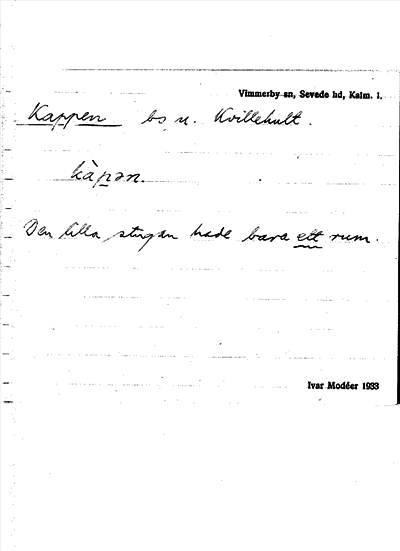 Vimmerby sn, Sevede hd, Kalm. l.
Kappen bs u. Kvillehult.
kàpən.
Den lilla stugan hade bara ett rum.
Ivar Modéer 1933